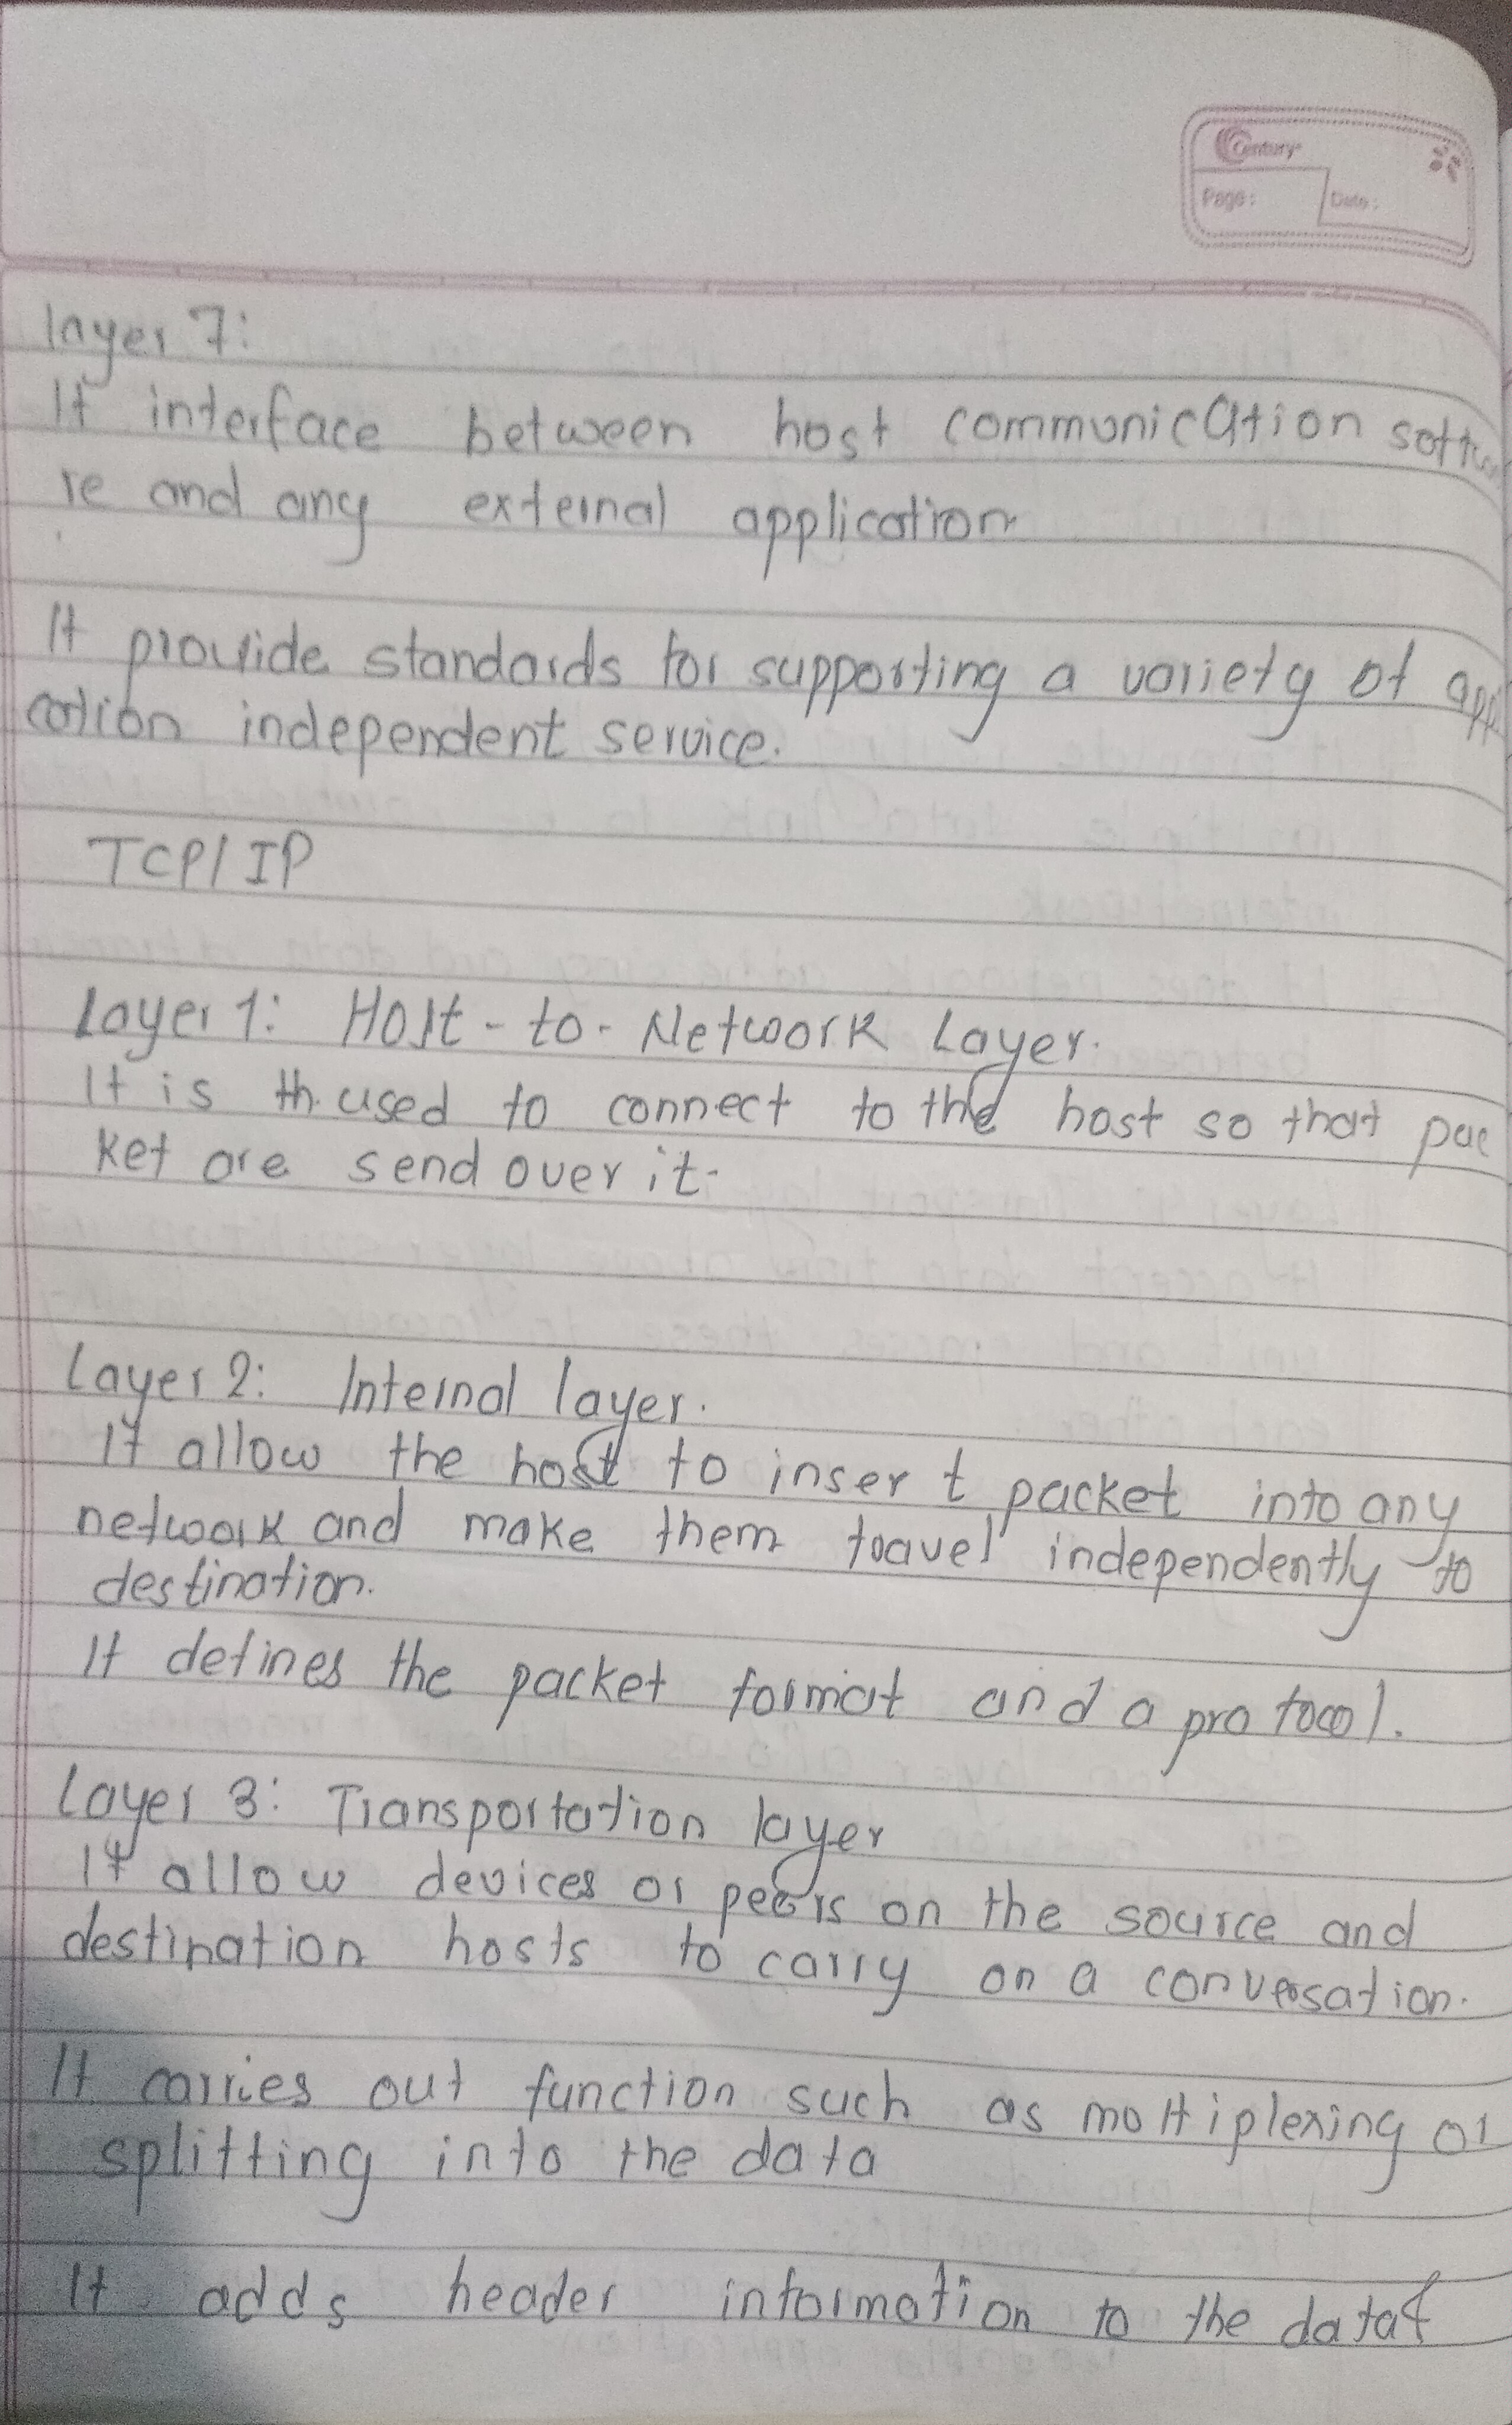 Century
Page:
Date:
layer 7:
It interface between host communication softwa
re and any external application
It provide standards for supporting a variety of app
cation independent service.
TCP/IP
Layer 1: Host-to-Network Layer.
It is th used to connect to the host so that pac
ket are send over it.
Layer 2: Internal layer.
It allow the host to insert packet into any
network and make them travel independently to
destination.
It defines the packet format and a protocol.
Layer 3: Transportation layer
It allow devices or peers on the source and
destination hosts to carry on a conversation.
It carries out function such as moltiplexing or
splitting into the data
It adds header information to the data